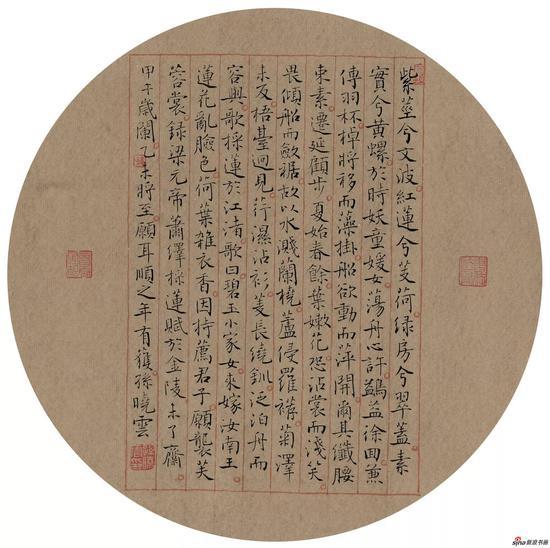 紫莖兮文波紅蓮兮芰荷綠房兮翠蓋素
實兮黃螺於時妖童媛女蕩舟心許鷁徐回兼
傳羽杯棹將移而藻掛船欲動而萍開爾其纖腰
束素遷延顧步夏始春餘葉嫩花恐沾裳而淺笑
畏傾船而斂裾故以水濺蘭橈蘆侵羅菊澤
未反梧臺迥見荇濕沾衫菱長繞釧泛泊舟而
容與歌採蓮於江渚歌曰碧玉小家女來嫁汝南王
蓮花亂臉色荷葉雜衣香因持薦君子願襲芙
蓉裳錄梁元帝蕭繹採蓮賦於金陵未了齋
甲午歲闌乙未將至願耳順之年有獲孫曉雲
sina新浪书画